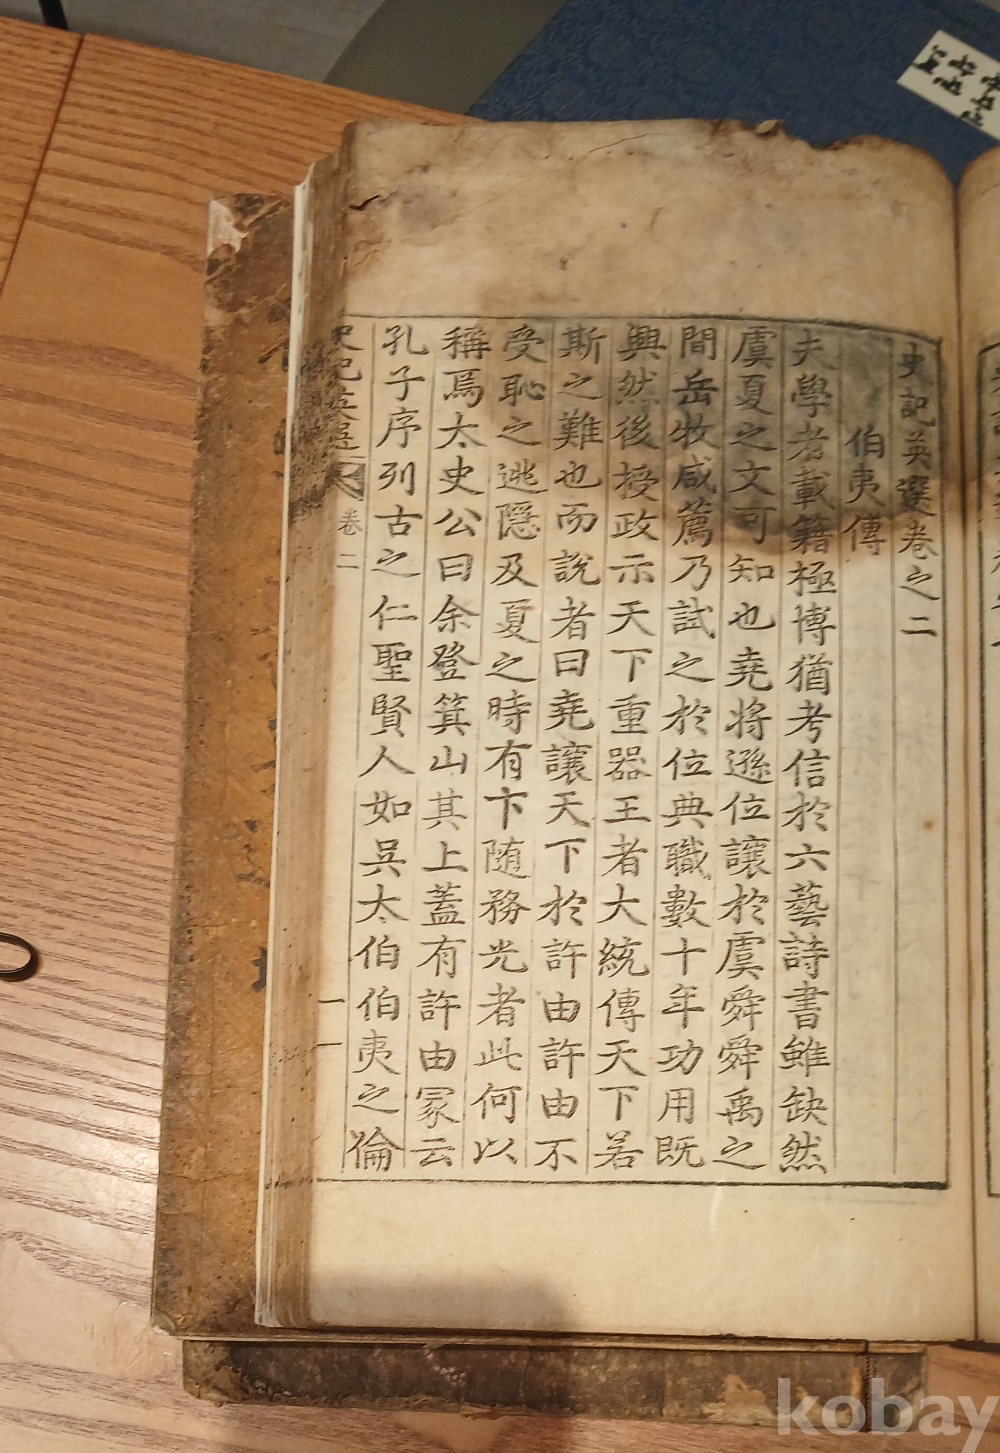 史記英選卷之二
伯夷傳
夫學者載籍極博猶考信於六藝詩書雖缺然
虞夏之文可知也堯將遜位讓於虞舜舜禹之
間岳牧咸薦乃試之於位典職數十年功用旣
興然後授政示天下重器王者大統傳天下若
斯之難也而說者曰堯讓天下於許由許由不
受恥之逃隱及夏之時有卞隨務光者此何以
稱焉太史公曰余登箕山其上蓋有許由冢云
孔子序列古之仁聖賢人如吳太伯伯夷之倫
史記英選
卷二
一
kobay